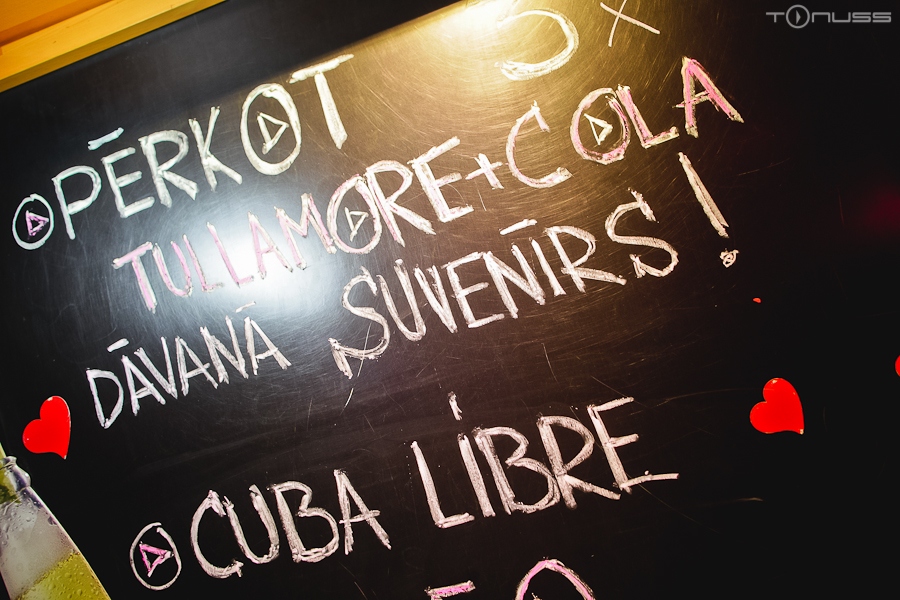 TONUSS
PĒRKOT 5 x
TULLAMORE+COLA
DĀVANĀ SUVENĪRS!
CUBA LIBRE